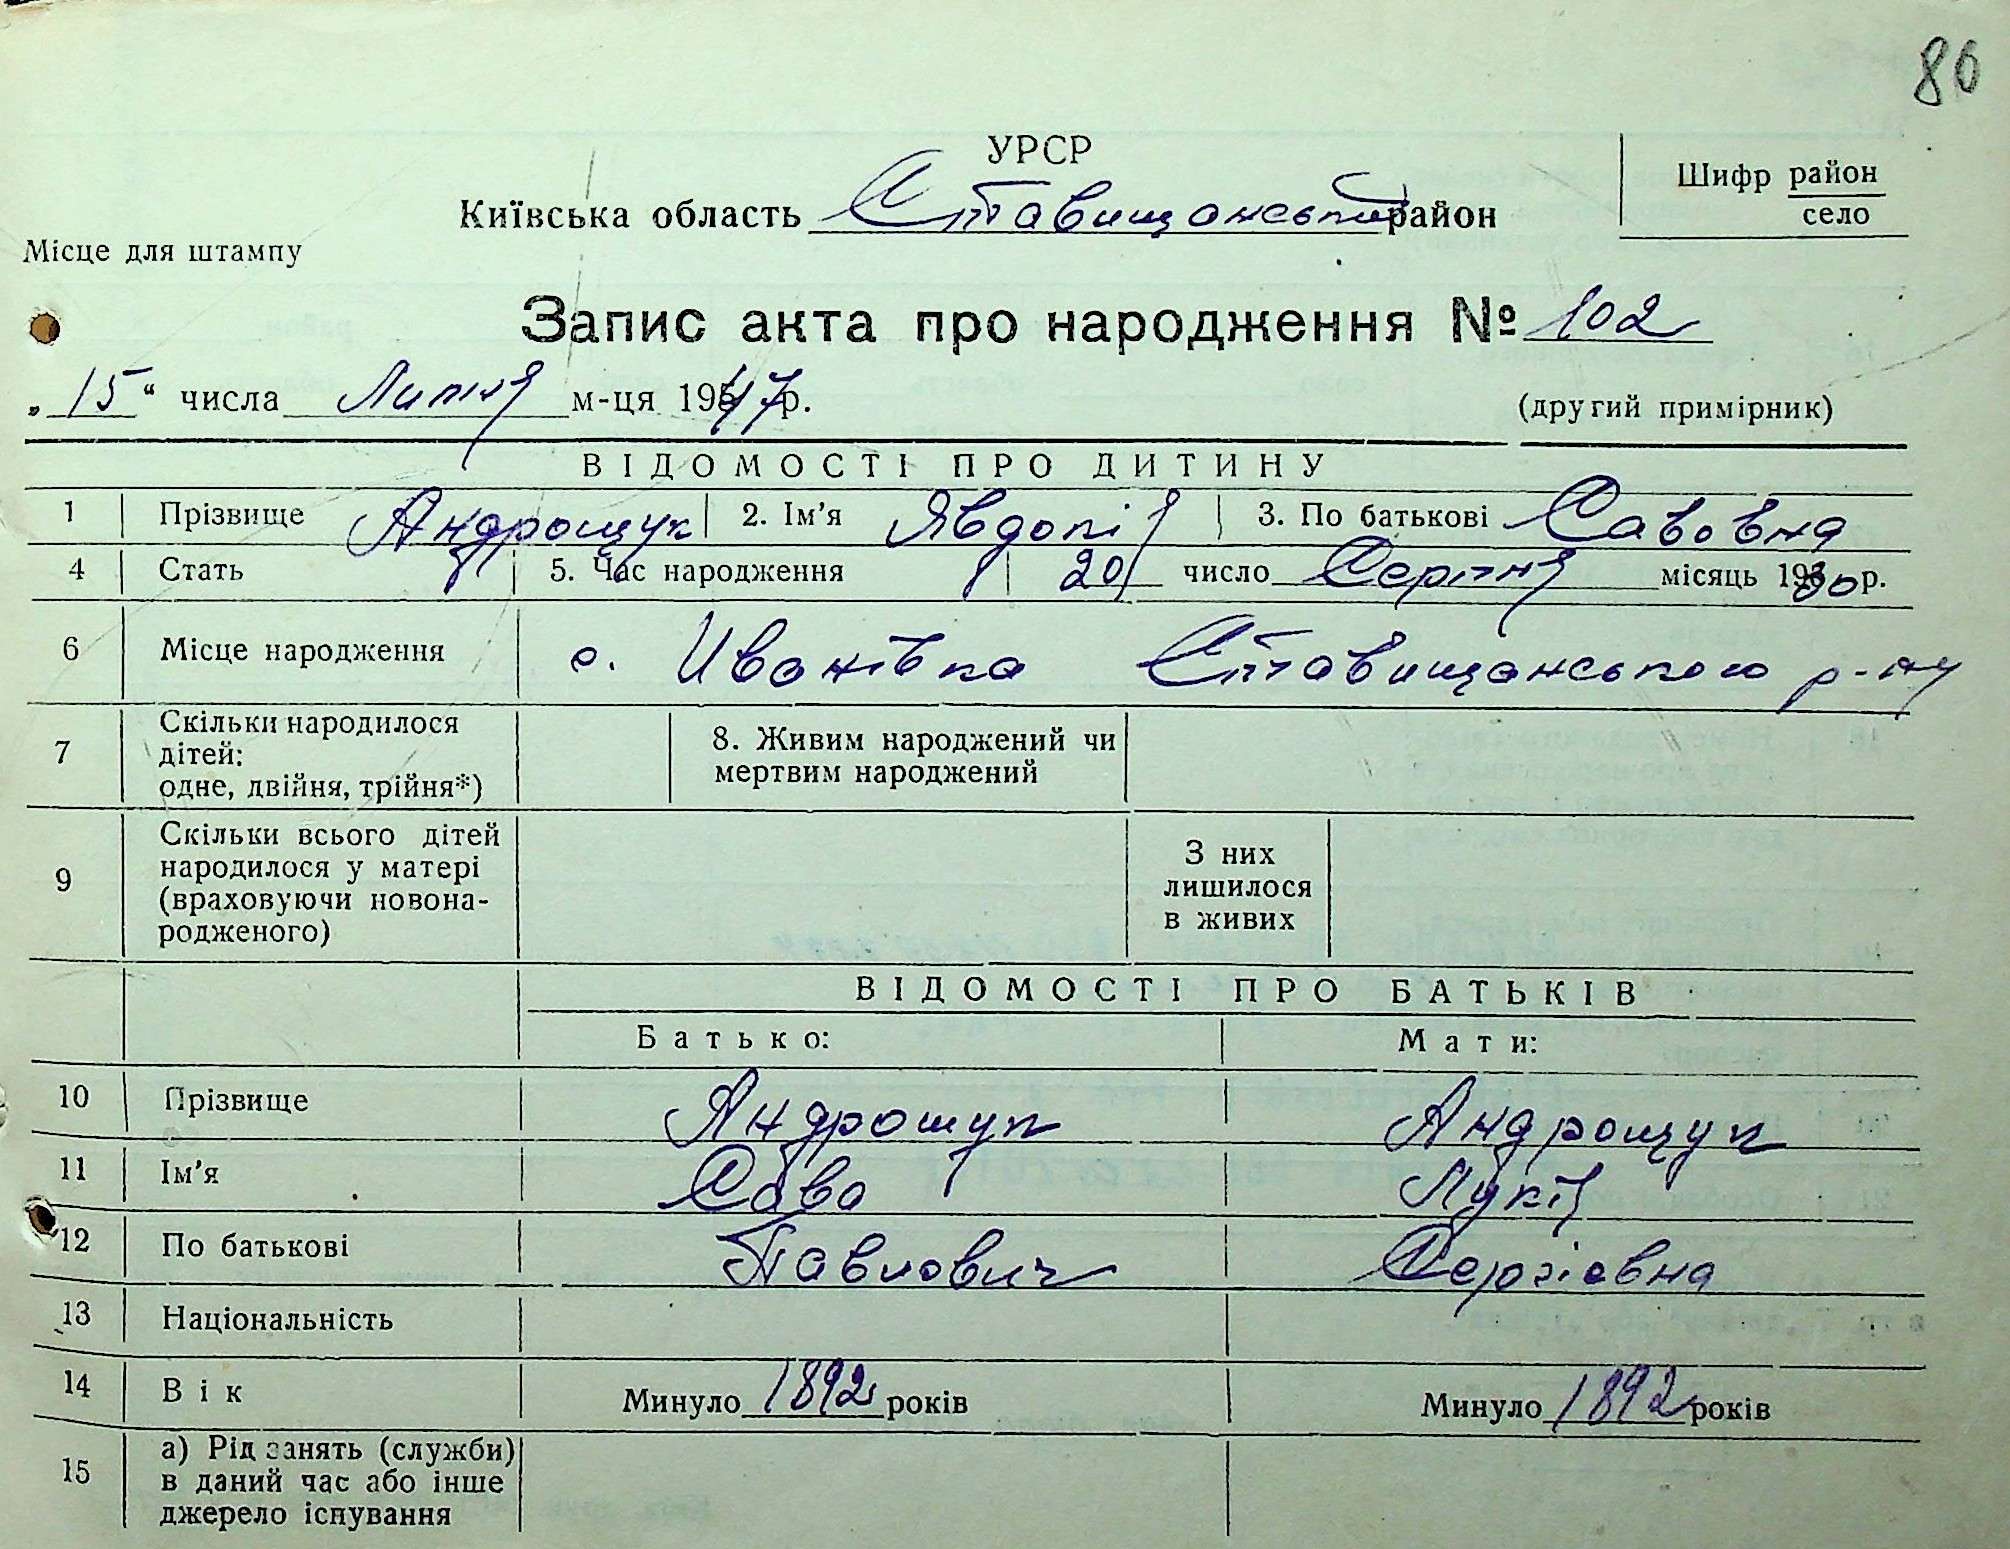 86
УРСР
Київська область Ставищанський район
Шифр район
село
Місце для штампу
Запис акта про народження № 102
„15“ числа Липня м-ця 1947 р.
(другий примірник)
ВІДОМОСТІ ПРО ДИТИНУ
1 Прізвище Андрощук 2. Ім'я Явдопія 3. По батькові Савовна
4 Стать 5. Час народження 20 число Серпня місяць 1930 р.
6 Місце народження с. Иванівка Ставищанського р-ну
7 Скільки народилося дітей: одне, двійня, трійня*) 8. Живим народжений чи мертвим народжений
9 Скільки всього дітей народилося у матері (враховуючи новонародженого) З них лишилося в живих
ВІДОМОСТІ ПРО БАТЬКІВ
Батько: Мати:
10 Прізвище Андрощук Андрощук
11 Ім'я Сава Лукія
12 По батькові Павлович Сергіевна
13 Національність
14 Вік Минуло 1892 років Минуло 1892 років
15 а) Рід занять (служби) в даний час або інше джерело існування